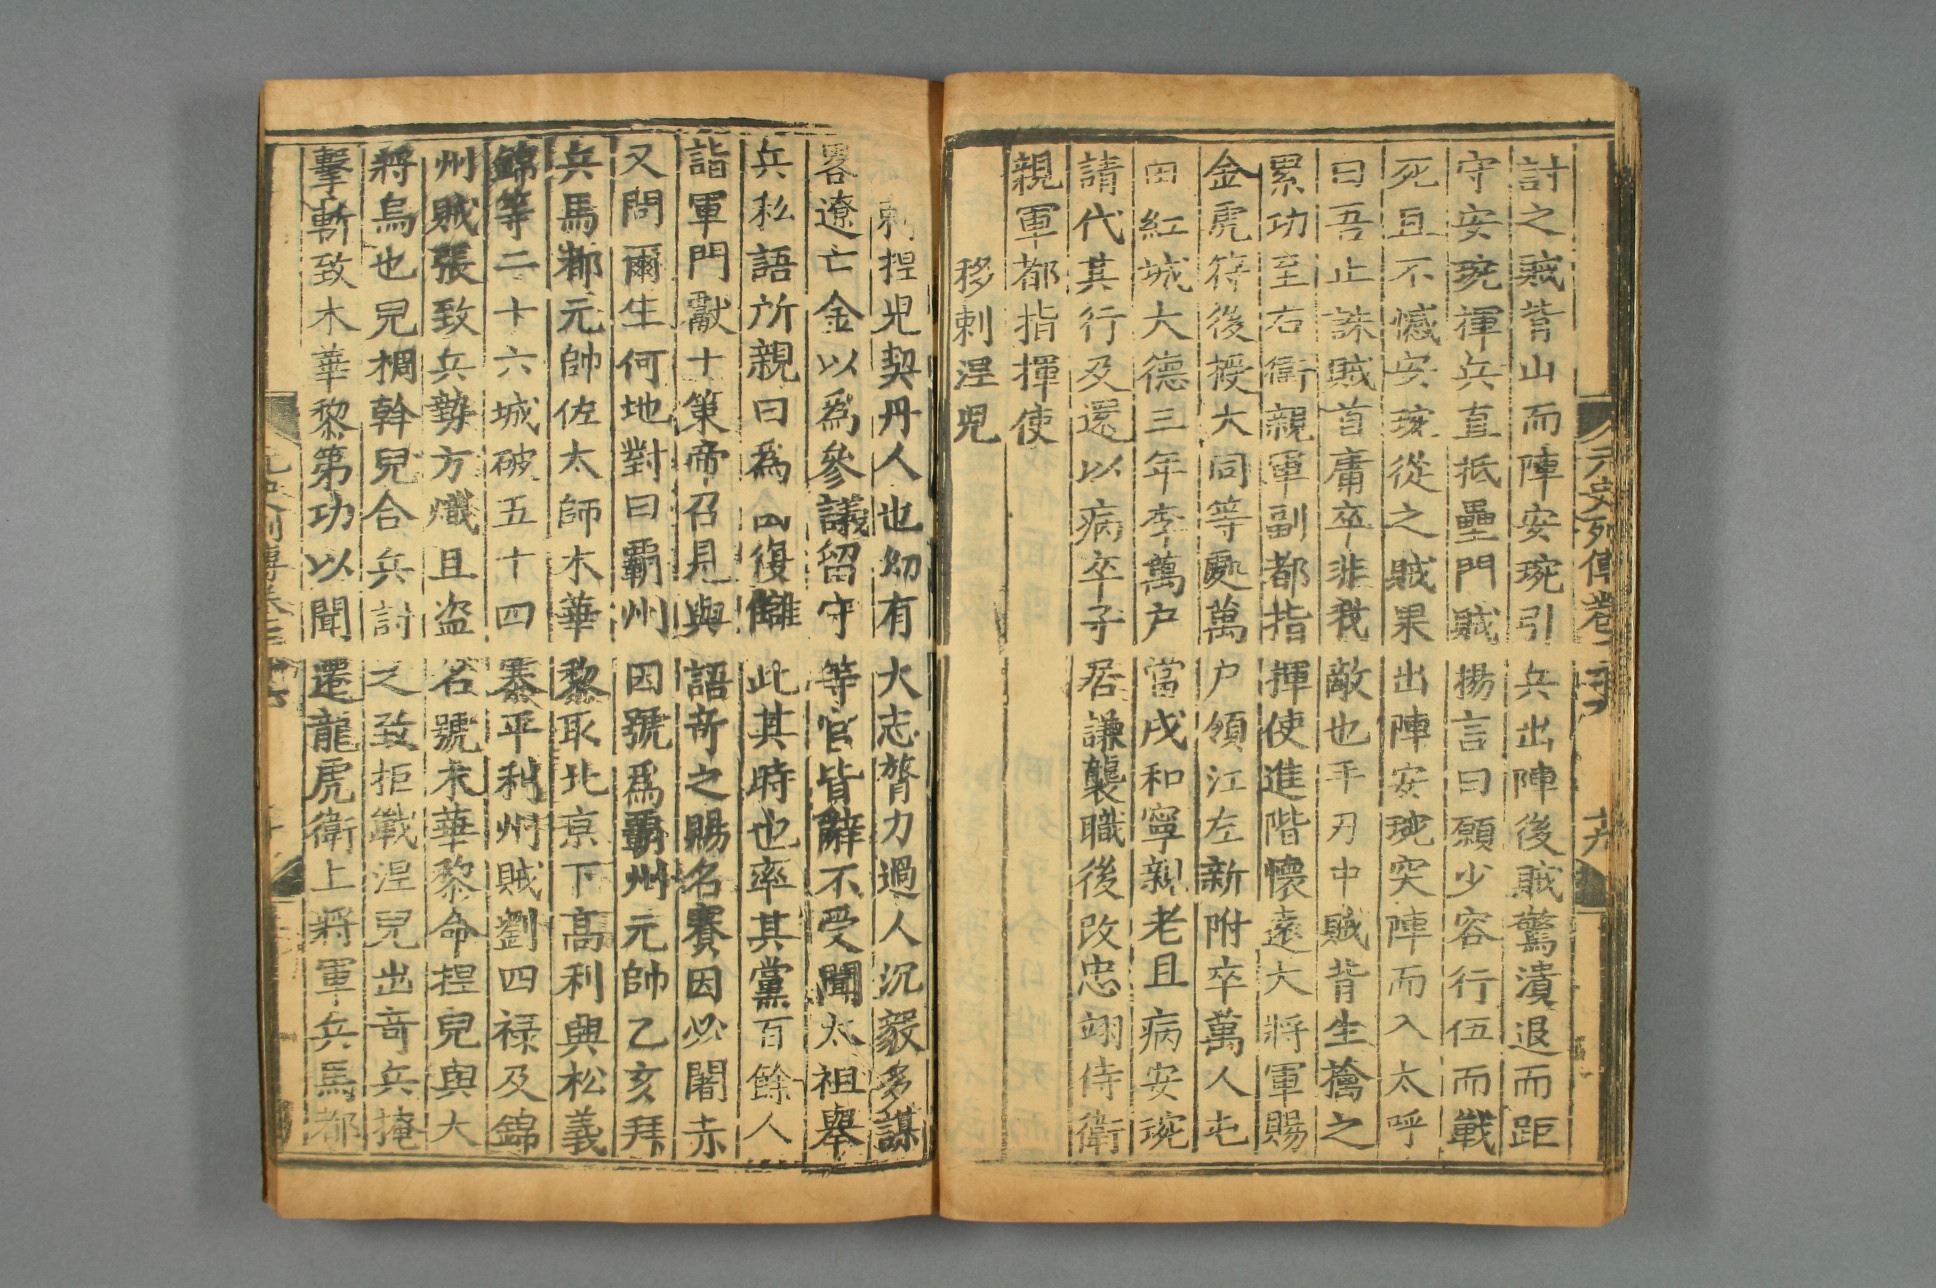 元史列傳卷三十六 廿九
討之賊背山而陣安琬引兵出陣後賊驚潰退而距
守安琬揮兵直抵壘門賊揚言曰願少容行伍而戰
死且不憾安琬從之賊果出陣安琬突陣而入大呼
曰吾止誅賊首庸卒非我敵也手刃中賊背生擒之
累功至右衛親軍副都指揮使進階懷遠大將軍賜
金虎符後授大同等處萬户領江左新附卒萬人屯
田紅城大德三年李萬户當戍和寧親老且病安琬
請代其行及還以病卒子居謙襲職後改忠翊侍衛
親軍都指揮使
移剌涅兒
剌捏児契丹人也幼有大志膂力過人沉毅多謀
畧遼亡金以爲參議留守等官皆辭不受聞太祖舉
兵私語所親曰爲國復讎此其時也率其黨百餘人
詣軍門獻十策帝召見與語奇之賜名賽因必闍赤
又問爾生何地對曰霸州因號爲霸州元帥乙亥拜
兵馬都元帥佐太師木華黎取北京下高利興松義
錦等二十六城破五十四寨平利州賊劉四禄及錦
州賊張致兵勢方熾且盗名號木華黎命捏兒與大
將烏也兒棢斡兒合兵討之致拒戰涅兒出奇兵掩
擊斬致木華黎第功以聞遷龍虎衛上將軍兵馬都
元史列傳卷三十六